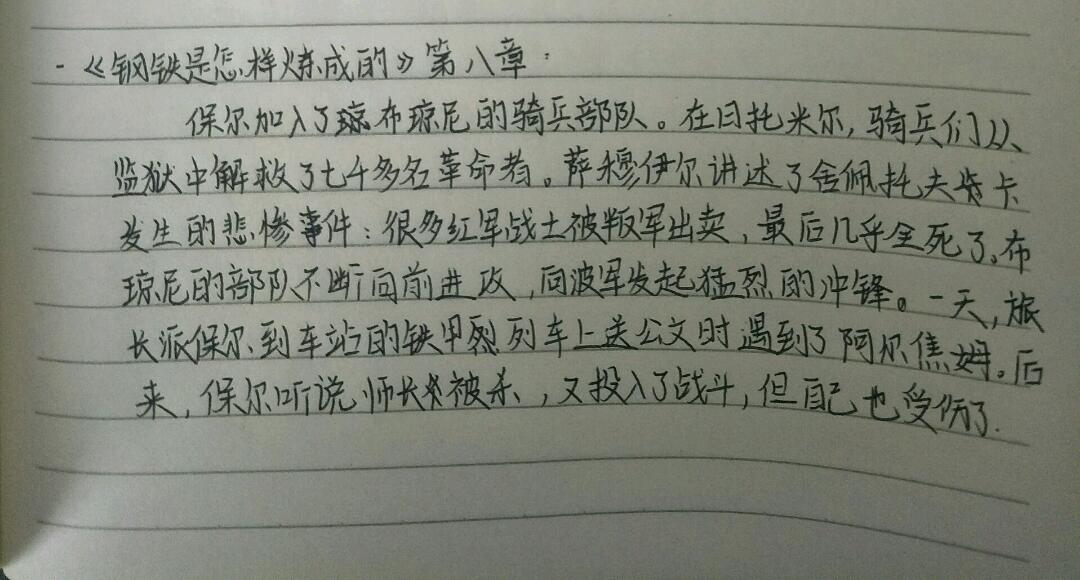 -《钢铁是怎样炼成的》第八章:
保尔加入了琼布琼尼的骑兵部队。在日托米尔,骑兵们从
监狱中解救了七千多名革命者。萨穆伊尔讲述了舍佩托夫卡
发生的悲惨事件:很多红军战士被叛军出卖,最后几乎全死了。布
琼尼的部队不断向前进攻,向波军发起猛烈的冲锋。一天,旅
长派保尔到车站的铁甲列车上送公文时遇到了阿尔焦姆。后
来,保尔听说师长被杀,又投入了战斗,但自己也受伤了.